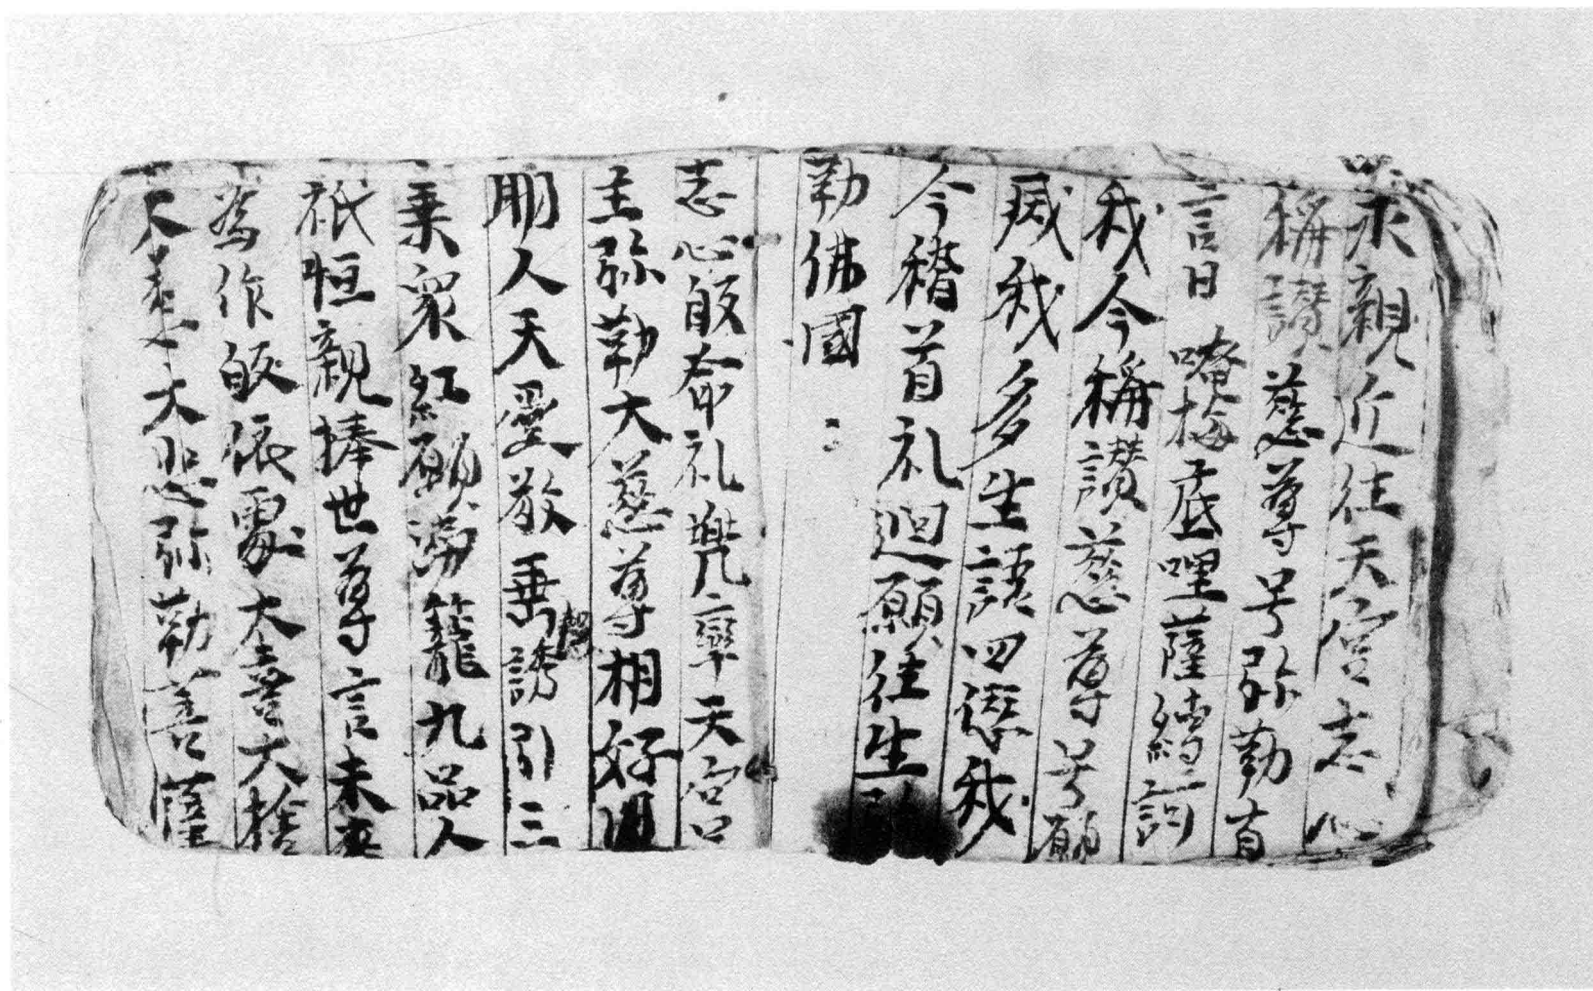 求親近往天宮志心
稱讃慈尊号弥勒有
言曰 𠿒梅底哩薩縛訶
我今稱讃慈尊号願
威我多生讀四𠎝我
今稽首礼迴願往生
勒佛國
志心皈命礼兜率天宮
主弥勒大慈尊相好
朋人天愛敬垂誘引三
乗衆紅願 籠九品人
祇恒親捧世尊言未来
為作皈依處大喜大捨
大慈大悲弥勒菩薩